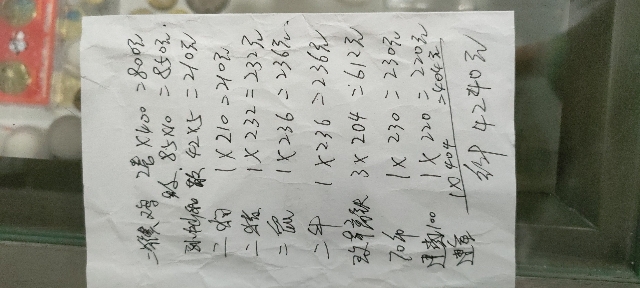 2套×400=800元
85×10=850元.
散 42×5=210元
1×210=210元
1×232=232元
二鼠 1×236=236元.
二牛 1×236=236元
高铁 3×204=612元
70钞 1×230=230元
100 1×220=220元
1×404=404元
4240元